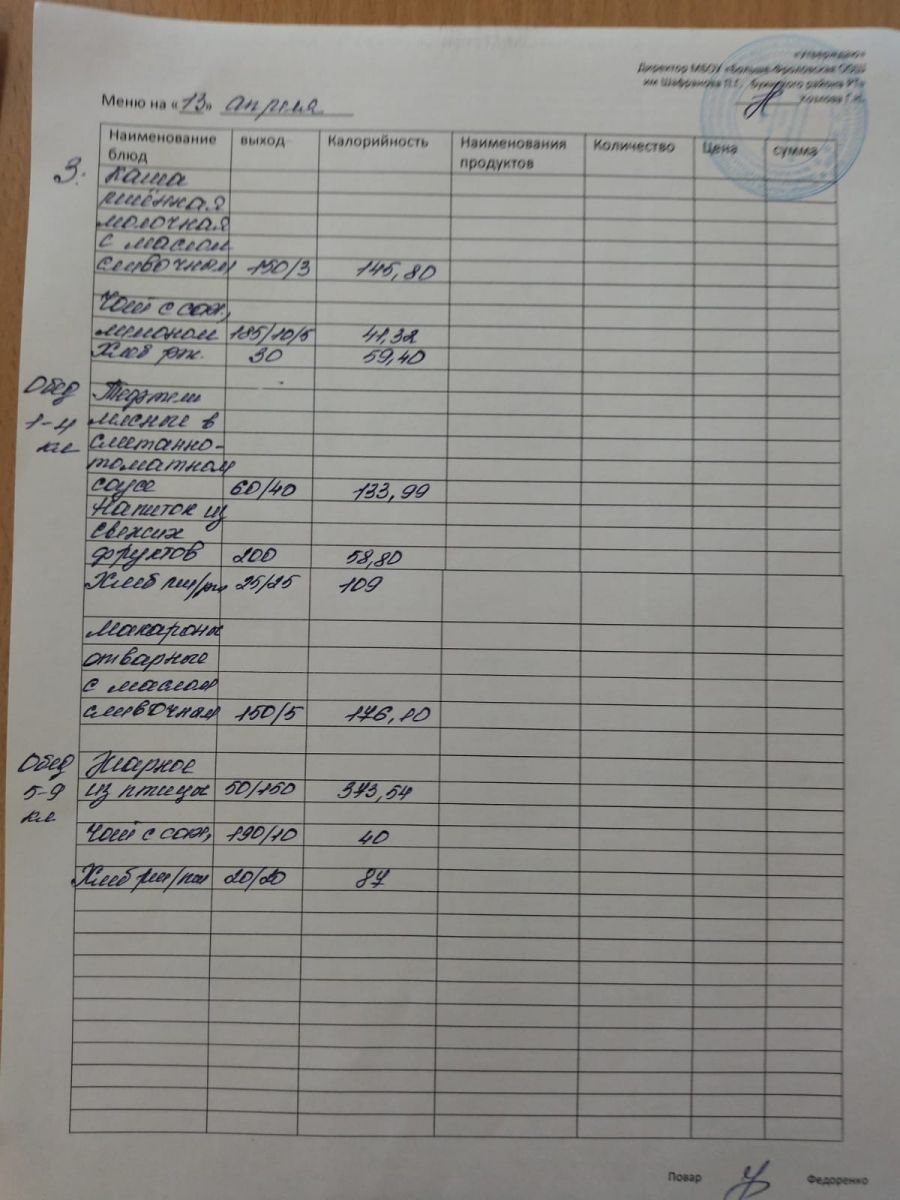 «Утверждаю»
Директор МБОУ «Больше-Фроловская ООШ
им Шафранова П.Г. Буинского района РТ»
Козлова Г.И.
Меню на «13» апреля
Наименование блюд выход Калорийность Наименования продуктов Количество Цена сумма
З. Каша
пшённая
молочная
с маслом
сливочным 150/3 145,80
Чай с сах,
лимоном 185/10/5 41,32
Хлеб рж. 30 59,40
Обед Тефтели
1-4 мясные в
кл сметанно-
томатном
соусе 60/40 133,99
Напиток из
свежих
фруктов 200 58,80
Хлеб пш/рж 25/25 109
Макароны
отварные
с маслом
сливочным 150/5 176,10
Обед Жаркое
5-9 из птицы 50/150 373,54
кл
Чай с сах, 190/10 40
Хлеб рж/пш 20/20 87
Повар Федоренко